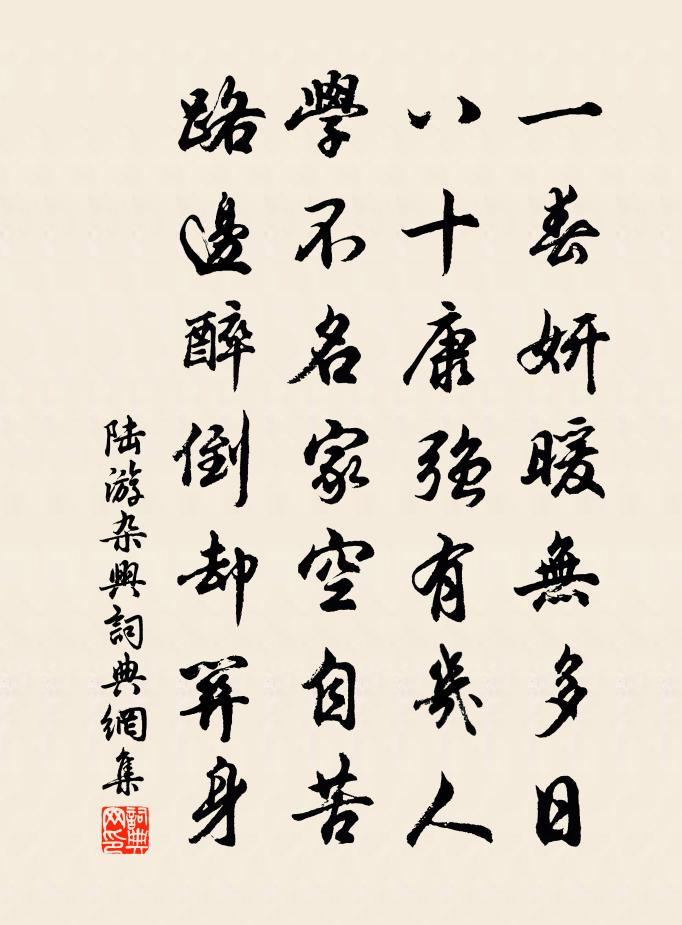 一春妍暖無多日
八十康強有幾人
學不名家空自苦
路邊醉倒却算身
陆游杂興詞典網集
詞典網印